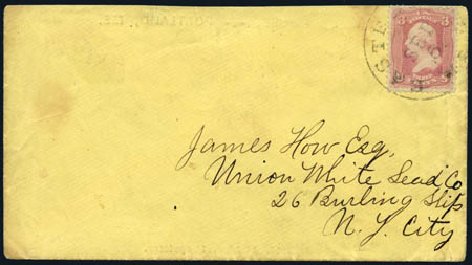 James How Esq.
Union White Lead Co
26 Burling Slip
N. Y. City
3 3